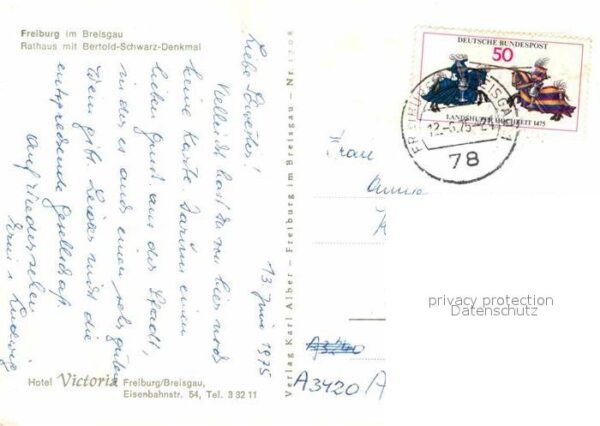 Freiburg im Breisgau
Rathaus mit Bertold-Schwarz-Denkmal
13. Juni 1975
Liebe Schwester!
Vielleicht hast du von hier noch
keine Karte. Darum einen
lieben Gruß aus der Stadt,
in der es auch einen sehr guten
Wein gibt. Leider nicht die
entsprechende Gesellschaft.
Auf Wiedersehen
Erni + Ludwig
Hotel Victoria Freiburg/Breisgau,
Eisenbahnstr. 54, Tel. 3 32 11
Verlag Karl Alber - Freiburg im Breisgau - Nr.
DEUTSCHE BUNDESPOST
50
LANDSHUTER HOCHZEIT 1475
78
Frau
A3420/A
privacy protection
Datenschutz